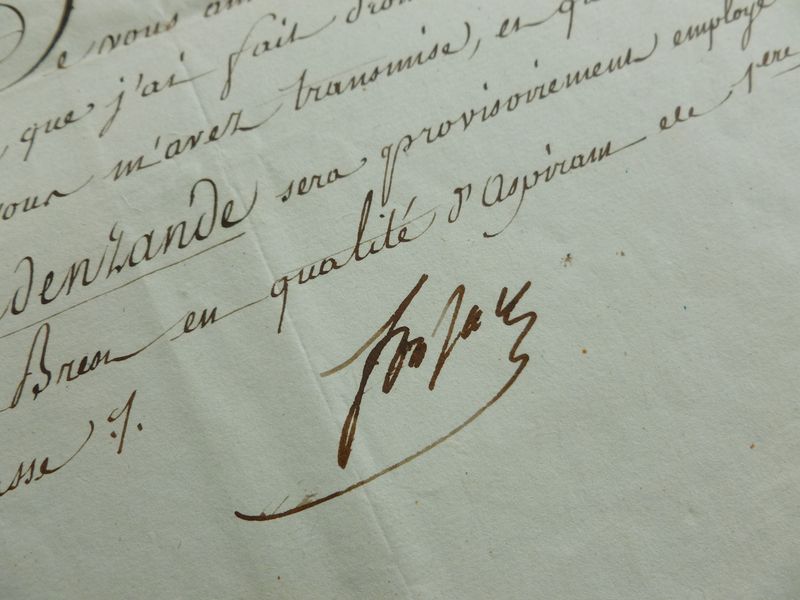 Je vous an
que j'ai fait droi
vous m'avez transmise, et qu
denlande sera provisoirement employé
Brest en qualité d'aspirant de 1ere
asse ./.